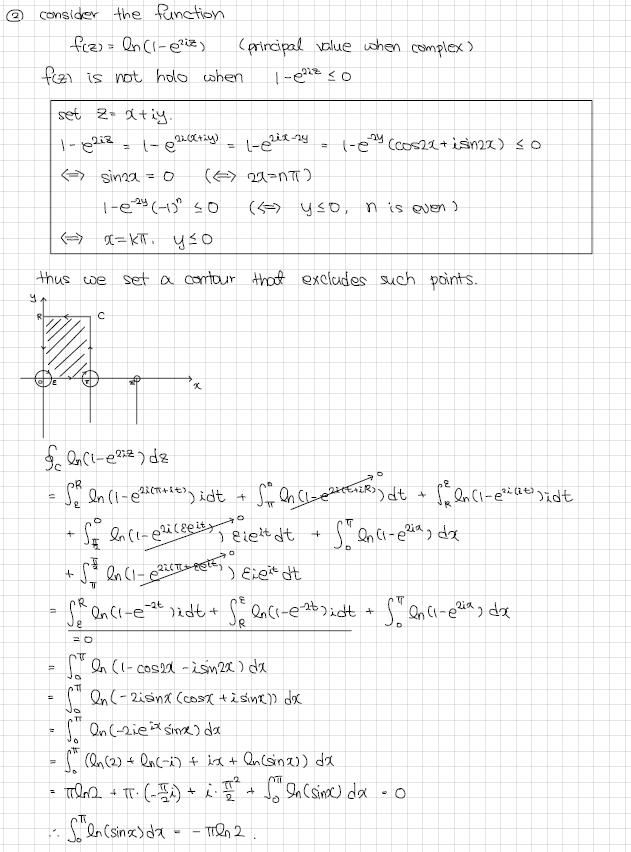 ② consider the function
f(z) = ln(1-e^{2iz}) (principal value when complex)
f(z) is not holo when 1-e^{2iz} ≤ 0
set z = x+iy.
1-e^{2iz} = 1-e^{2i(x+iy)} = 1-e^{2ix-2y} = 1-e^{-2y}(cos2x+isin2x) ≤ 0
⟺ sin2x = 0 (⟺ 2x=nπ)
1-e^{-2y}(-1)^n ≤ 0 (⟺ y≤0, n is even)
⟺ x=kπ, y≤0
thus we set a contour that excludes such points.
y
R C
0 ε π x
∮_C ln(1-e^{2iz}) dz
= ∫_ε^R ln(1-e^{2i(π+it)}) idt + ∫_π^0 ln(1-e^{2i(t+iR)}) dt + ∫_R^ε ln(1-e^{2i(it)}) idt
+ ∫_{π/2}^0 ln(1-e^{2i(εe^{it})}) εie^{it} dt + ∫_0^π ln(1-e^{2ix}) dx
+ ∫_π^{π/2} ln(1-e^{2i(π+εe^{it})}) εie^{it} dt
= ∫_ε^R ln(1-e^{-2t}) idt + ∫_R^ε ln(1-e^{-2t}) idt + ∫_0^π ln(1-e^{2ix}) dx
= 0
= ∫_0^π ln(1-cos2x-isin2x) dx
= ∫_0^π ln(-2isinx(cosx+isinx)) dx
= ∫_0^π ln(-2ie^{ix}sinx) dx
= ∫_0^π (ln(2)+ln(-i)+ix+ln(sinx)) dx
= πln2 + π·(-π/2 i) + i·π²/2 + ∫_0^π ln(sinx) dx = 0
∴ ∫_0^π ln(sinx) dx = -πln2.